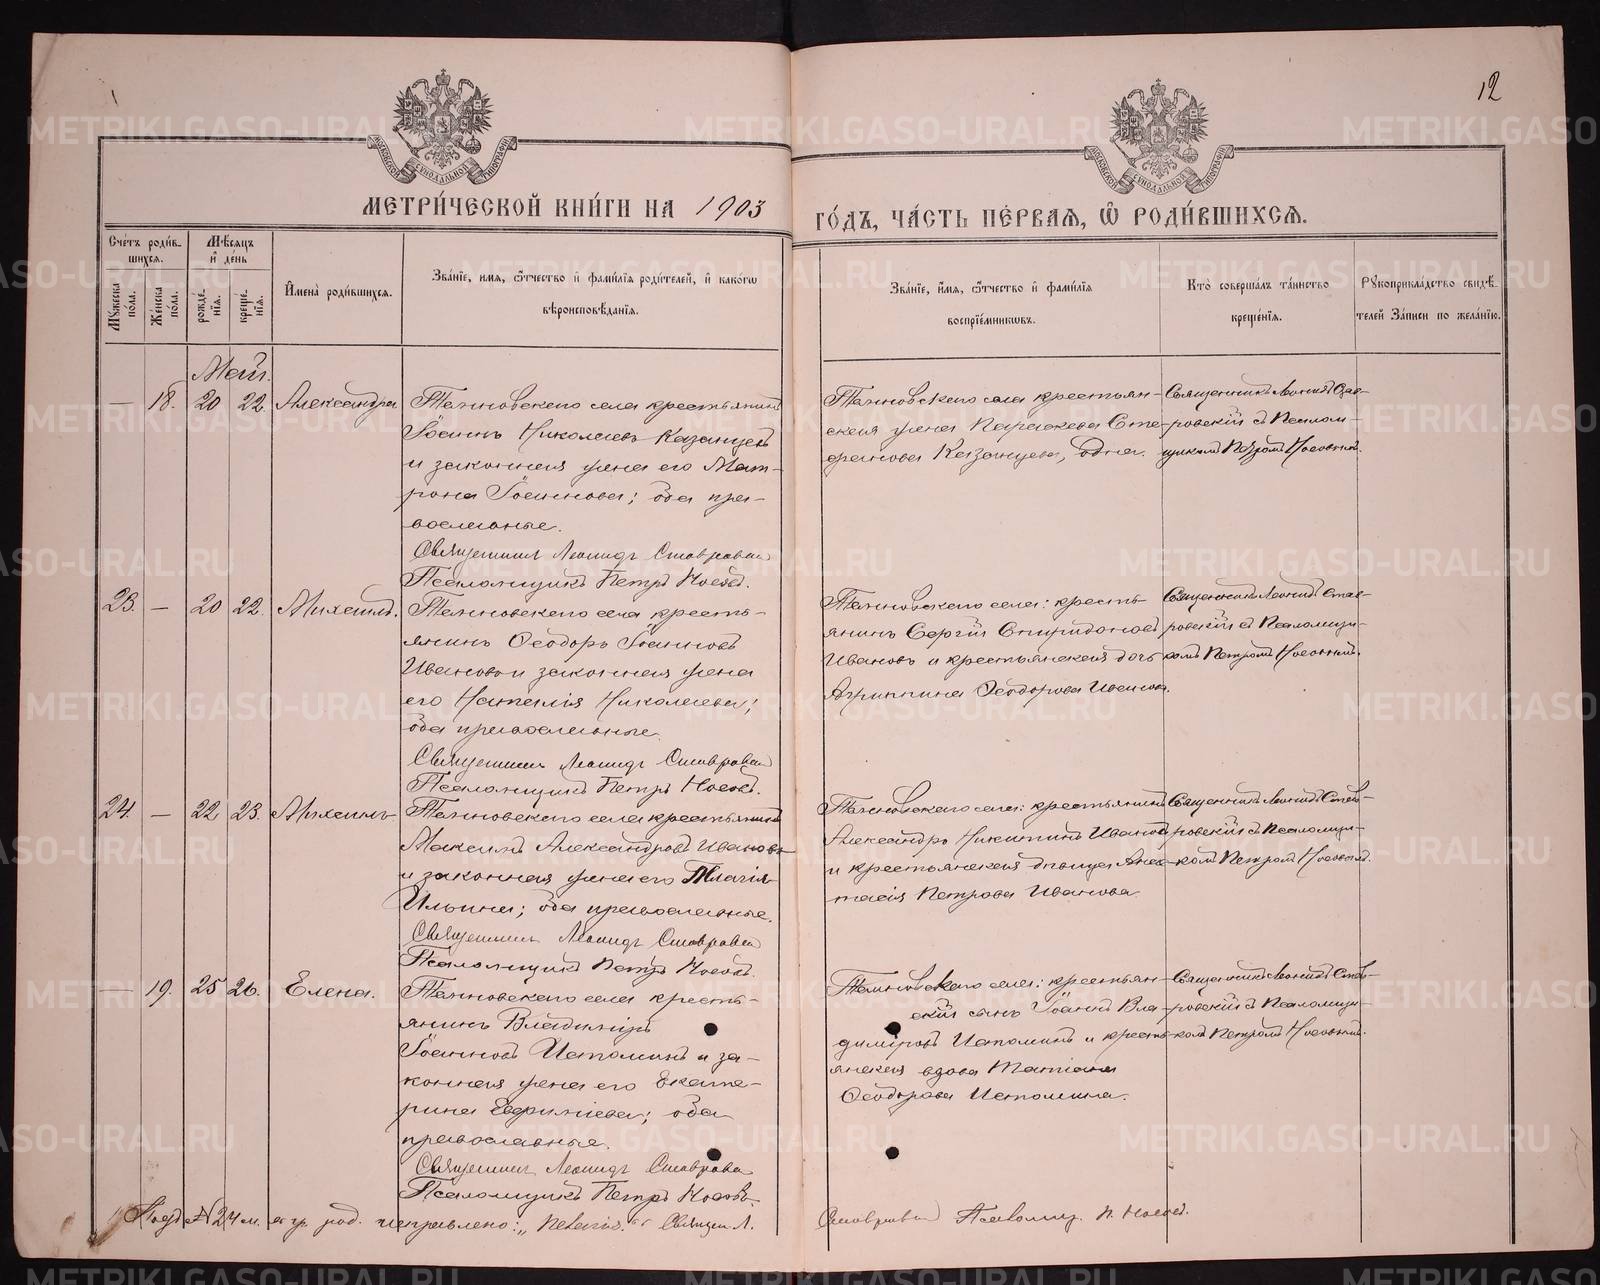 12
МОСКОВСКОЙ СѴНОДАЛЬНОЙ ТИПОГРАФІИ
МОСКОВСКОЙ СѴНОДАЛЬНОЙ ТИПОГРАФІИ
МЕТРИ́ЧЕСКОЙ КНИ́ГИ НА 1903
ГО́ДЪ, ЧА́СТЬ ПЕ́РВАЯ, Ѽ РОДИ́ВШИХСЯ.
Сче́тъ роди́в-
шихся.
Мꙋ́жеска
по́ла.
Же́нска
по́ла.
Мѣ́сяцъ
и҆ де́нь
рожде́-
нїя.
креще́-
нїя.
И҆мена̀ роди́вшихся.
Зва́нїе, и҆мя, ѻ҆́тчество и҆ фами́лїѧ роди́телей, и҆ како́гѡ
вѣроисповѣ́данїя.
Зва́нїе, и҆́мя, ѻ҆́тчество и҆ фами́лїя
воспрїе́мникѡвъ.
Кто̀ соверша́лъ та́инство
креще́нїя.
Рꙋкоприкла́дство свидѣ́-
телей За́писи по жела́нїю.
Май.
— 18. 20 22. Александра
Темновского села крестьянинъ
Іоаннъ Николаевъ Казанцевъ
и законная жена его Мат-
рона Іоаннова; оба пра-
вославные.
Священникъ Леонидъ Ставровскій
Псаломщикъ Петръ Носовъ.
села крестьян-
ская жена Параскева Сте-
фанова Казанцева, одна.
Священникъ Леонидъ Став-
ровскій съ Псалом-
щикомъ Петромъ Носовымъ.
23. — 20 22. Михаилъ.
села кресть-
янинъ Ѳеодоръ Іоанновъ
Ивановъ и законная жена
его Наталія Николаева;
оба православные.
Священникъ Леонидъ Ставровскій
Псаломщикъ Петръ Носовъ.
села: кресть-
янинъ Сергій Спиридоновъ
Ивановъ и крестьянская дочь
Агриппина Ѳеодорова Иванова.
Священникъ Леонидъ Став-
ровскій съ Псаломщи-
комъ Петромъ Носовымъ.
24. — 22. 23. Михаилъ
села крестьянинъ
Максимъ Александровъ Ивановъ
и законная жена его
Ильина; оба православные.
Священникъ Леонидъ Ставровскій
Псаломщикъ Петръ Носовъ.
села: крестьянинъ
Александръ Никитинъ Ивановъ
и крестьянская дѣвица Анас-
тасія Петрова Иванова.
Священникъ Леонидъ Став-
ровскій съ Псаломщи-
комъ Петромъ Носовымъ.
— 19. 25 26. Елена.
села кресть-
янинъ Владиміръ
Іоанновъ Истоминъ и за-
конная жена его Екате-
рина Евфиміева; оба
православные.
Священникъ Леонидъ Ставровскій
Псаломщикъ Петръ Носовъ.
села: крестьян-
скій сынъ Іоаннъ Вла-
диміровъ Истоминъ и кресть-
янская вдова Татіана
Ѳеодорова Истомина.
Священникъ Леонидъ Став-
ровскій съ Псаломщи-
комъ Петромъ Носовымъ.
Подъ № 24 м. въ гр. род. исправлено: „Пелагія." Священ. Л.
Ставровскій Псаломщ. П. Носовъ.
METRIKI.GASO-URAL.RU